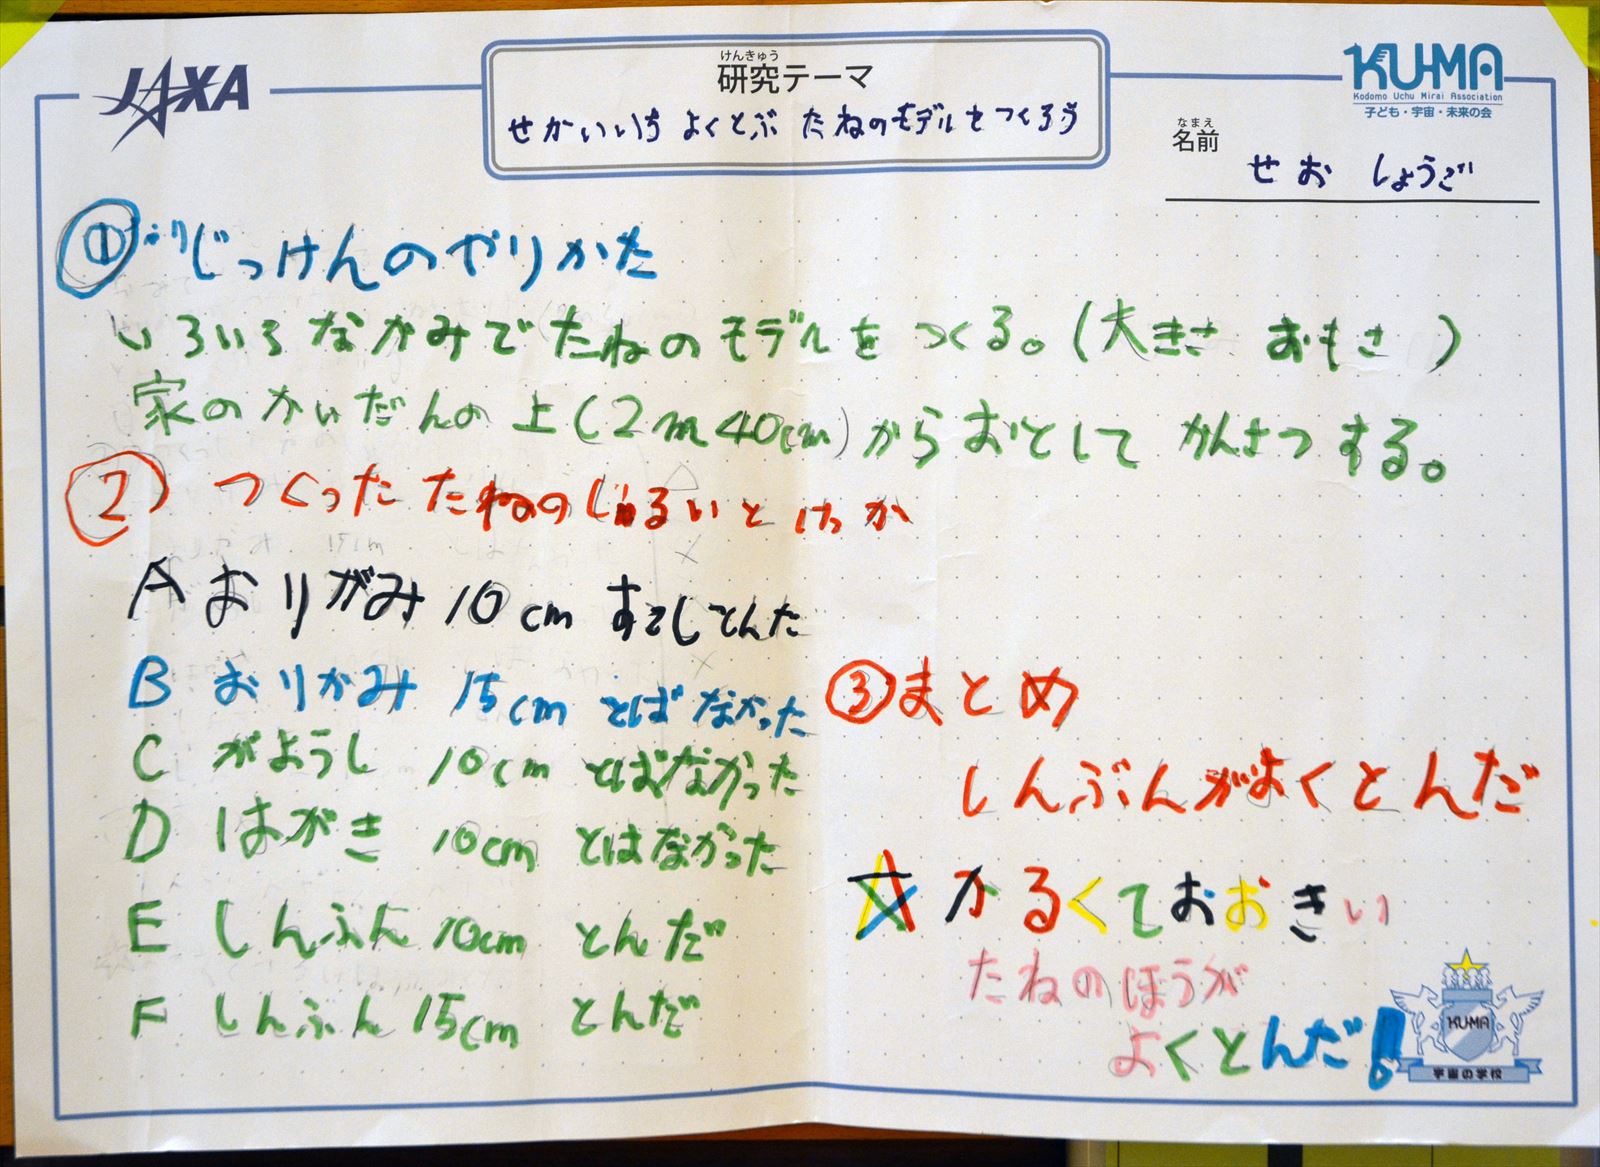 JAXA
けんきゅう
研究テーマ
せかいいち よくとぶ たねのモデルをつくろう
KU-MA
Kodomo Uchu Mirai Association
子ども・宇宙・未来の会
なまえ
名前
せお しょうご
① じっけんのやりかた
いろいろ なかみで たねの モデルを つくる。(大きさ おもさ )
家のかいだんの上(2m40cm)からおとして かんさつする。
② つくった たねの しゅるいと けっか
A おりがみ 10cm すこしとんだ
B おりかみ 15cm とばなかった
C がようし 10cm とばなかった
D はがき 10cm とはなかった
E しんぶん 10cm とんだ
F しんぶん 15cm とんだ
③まとめ
しんぶんがよくとんだ
☆ かるくておおきい
たねのほうが
よくとんだ!
KU-MA
宇宙の学校